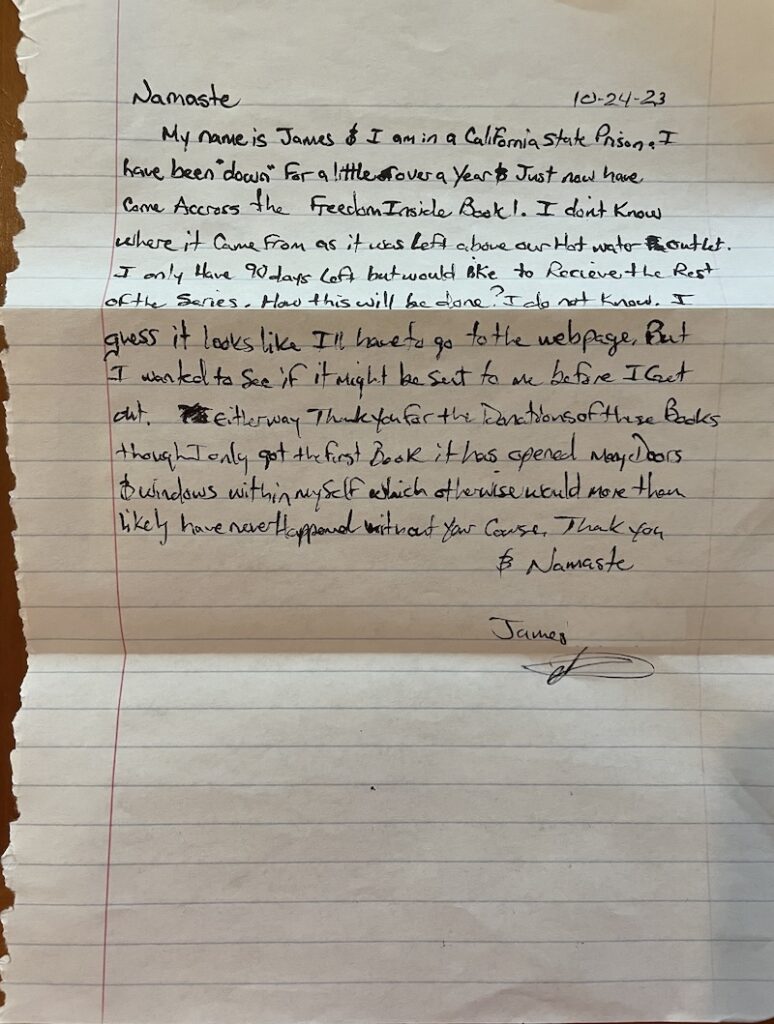 Namaste 10-24-23
My name is James & I am in a California State Prison. I
have been "down" For a little over a Year & Just now have
Come Accross the Freedom Inside Book!. I don't Know
where it Came From as it was Left above our Hot water outlet.
I only Have 90 days Left but would like to Recieve the Rest
of the Series. How this will be done? I do not know. I
guess it looks like I'll have to go to the webpage, But
I wanted to See if it might be Sent to me before I Get
out. Either way Thank you for the Donations of these Books
though I only got the first Book it has opened many Doors
& windows within my Self which otherwise would more than
likely have never Happened without your Course. Thank you
& Namaste
James